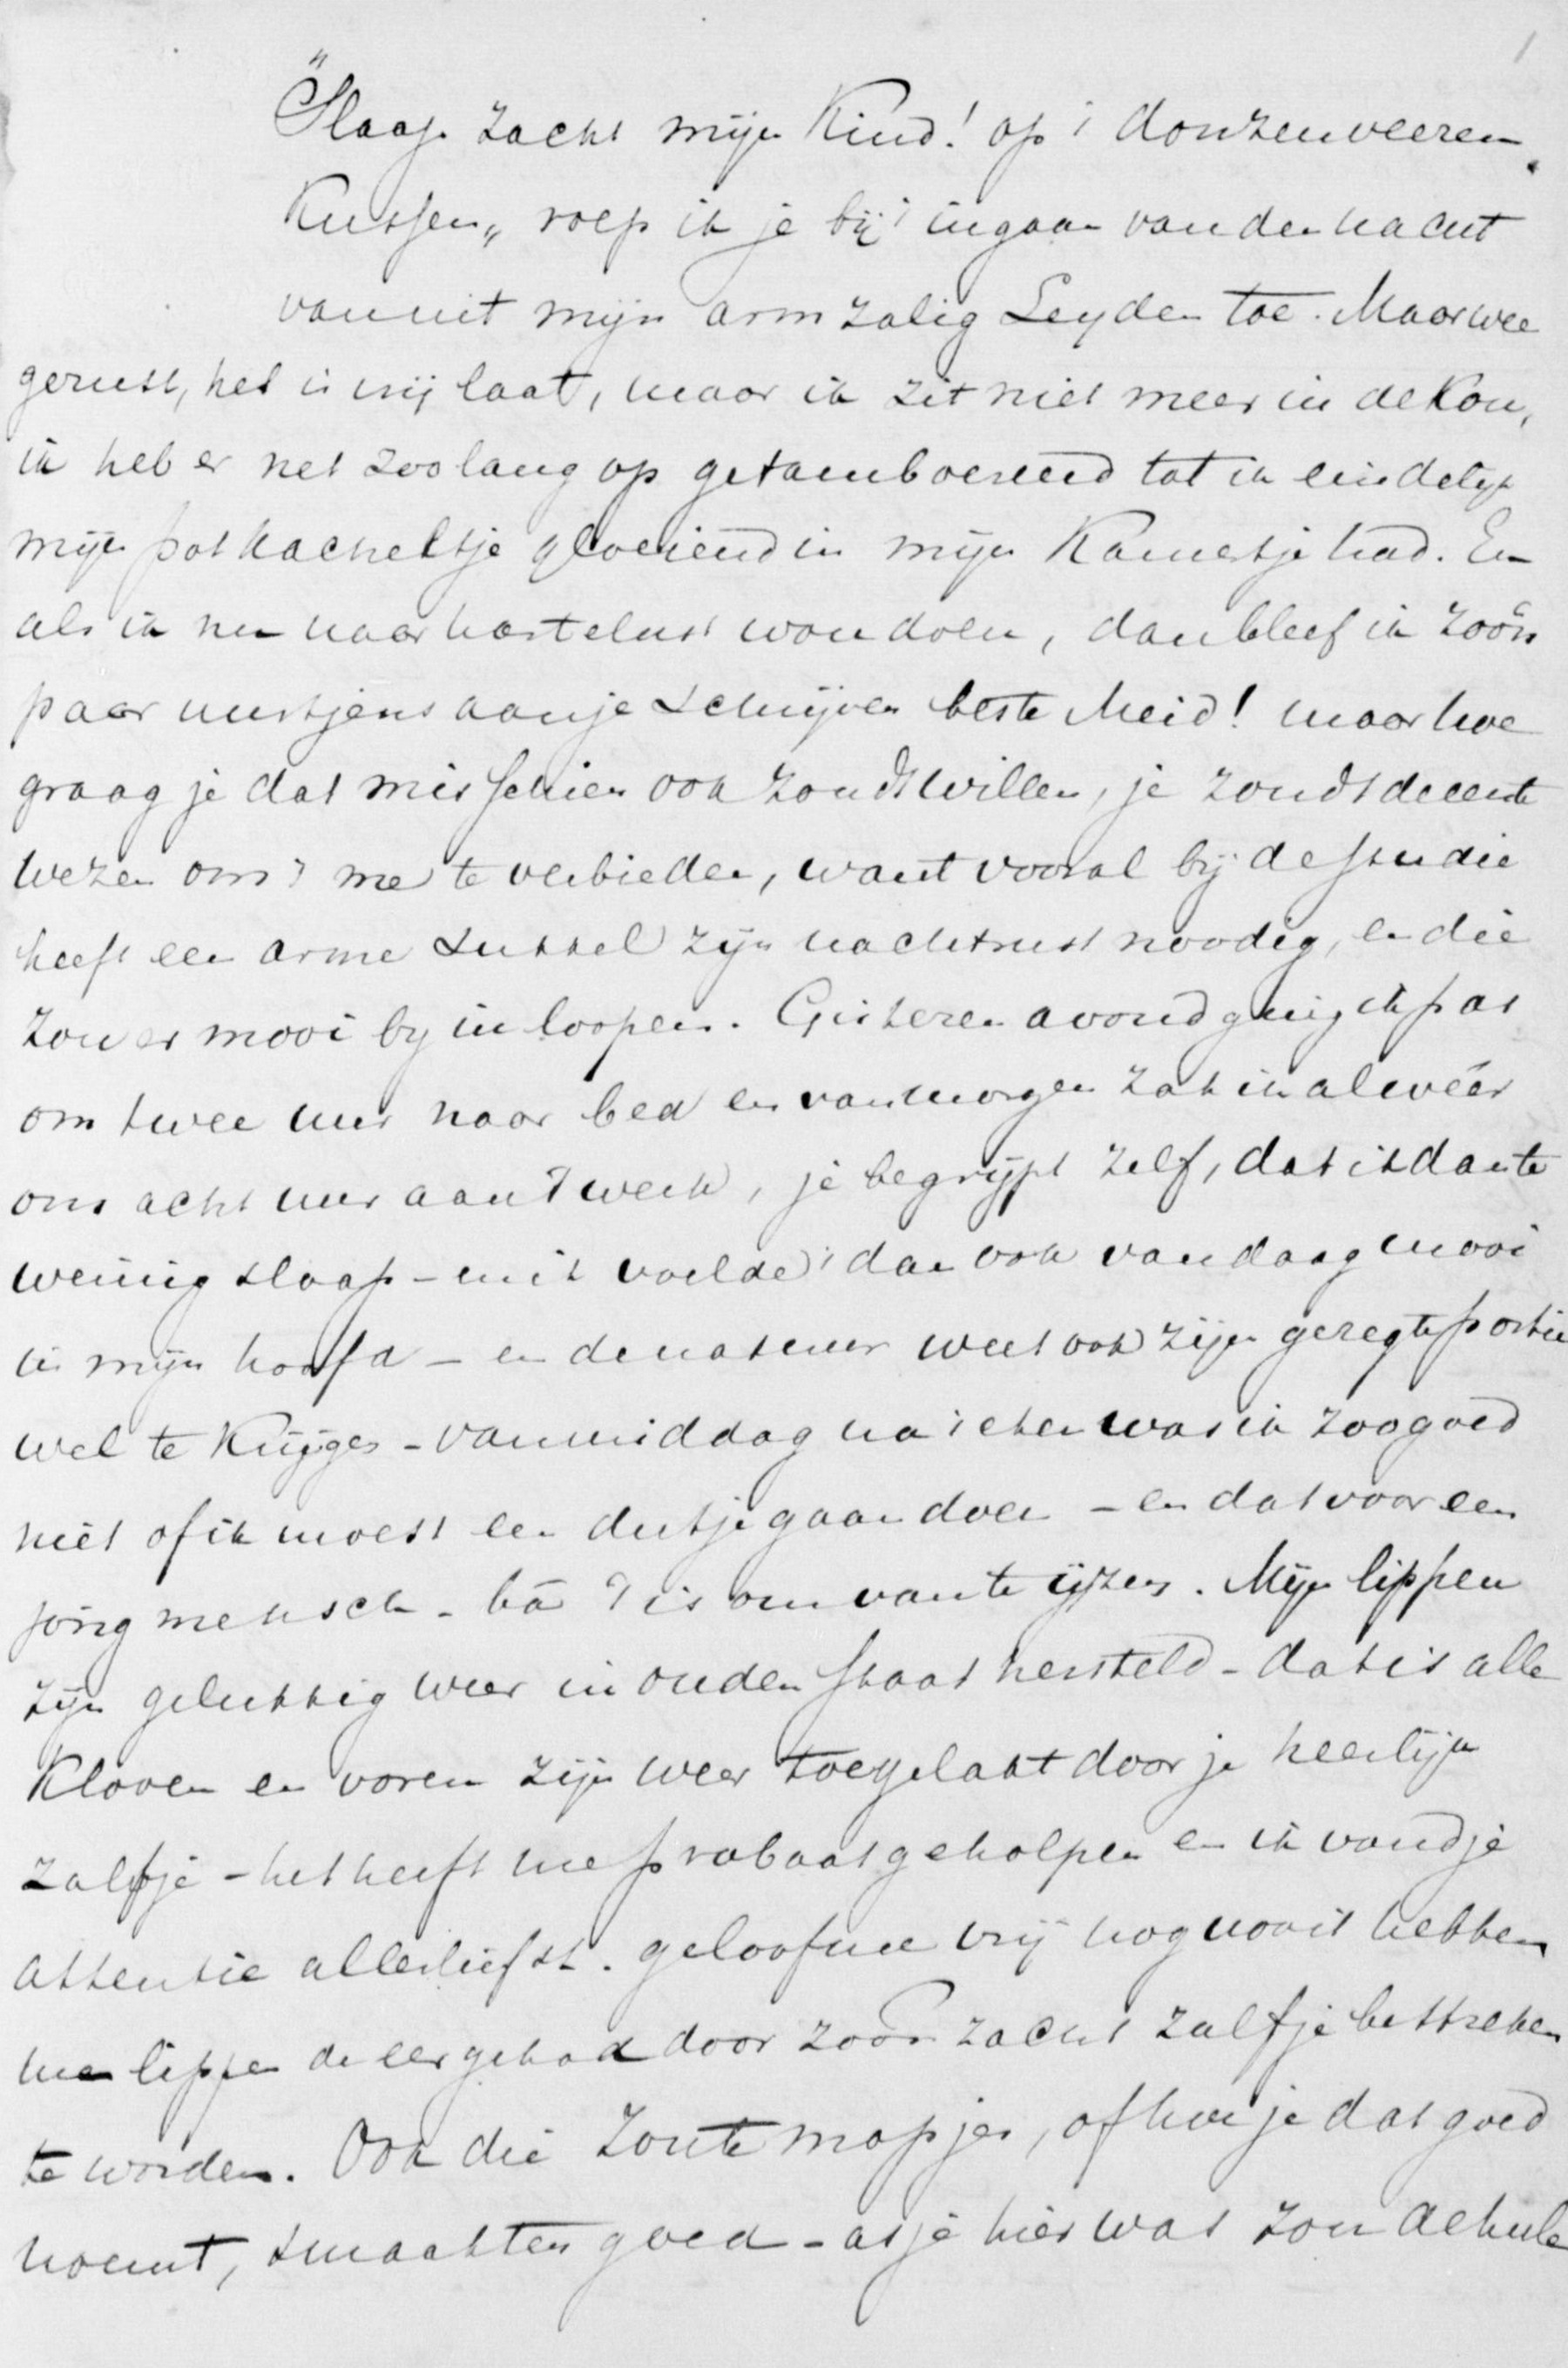 1
"Slaap zacht mijn Kind! op 't donzenveeren
Kussen„ roep ik je bij 't ingaan van den nacht
vanuit mijn armzalig Leyden toe. Maar wee
gerust, het is vrij laat, maar ik zit niet meer in de kou,
ik heb er net zoolang op getamboereerd tot ik eindelijk
mijn potkacheltje gloeiend in mijn Kamertje had. En
als ik nu naar hartelust wou doen, dan bleef ik zoo'n
paar uurtjens aan je schrijven beste Meid! maar hoe
graag je dat misschien ook zoudt willen, je zoudt de eerste
wezen om 't me te verbieden, want vooral bij de studie
heeft een arme sukkel zijn nachtrust noodig, en die
zou er mooi bij in loopen. Gisteren avond ging ik pas
om twee uur naar bed en vanmorgen zat ik al wéér
om acht uur aan 't werk, je begrijpt zelf, dat is dan te
weinig slaap - en ik voelde 't dan ook vandaag mooi
in mijn hoofd - en de natuur weet ook zijn geregte portie
wel te Krijgen - vanmiddag na 't eten was ik zoo goed
niet of ik moest een dutje gaan doen - en dat voor een
jong mensch - bà 't is om van te ijzen. Mijn lippen
zijn gelukkig weer in ouden staat hersteld - dat is alle
Kloven en voren zijn weer toegelakt door je heerlijk
zalfje - het heeft me probaat geholpen en ik vond je
attentie allerliefst. geloof me vrij nog nooit hebben
me lippen de eer gehad door zoo'n zacht zalfje bestreken
te worden. Ook die zoute mopjes, of hoe je dat goed
noemt, smaakten goed - as je hier was zou de hele